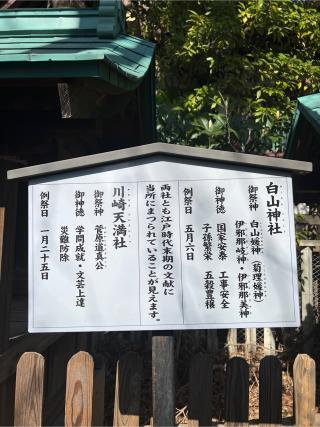 白山神社
御祭神 白山媛神(菊理媛神)
伊邪那岐神・伊邪那美神
御神徳 国家安泰 工事安全
子孫繁栄 五穀豊穣
例祭日 五月六日
両社とも江戸時代末期の文献に
当所にまつられていることが見えます。
川崎天満社
御祭神 菅原道真公
御神徳 学問成就・文芸上達
災難防除
例祭日 一月二十五日